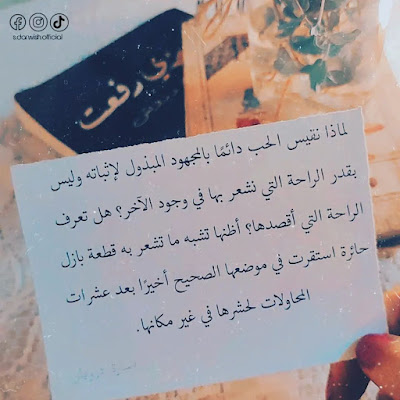 s.darwishofficial
رفعت
لماذا نقيس الحب دائمًا بالمجهود المبذول لإثباته وليس
بقدر الراحة التي نشعر بها في وجود الآخر؟ هل تعرف
الراحة التي أقصدها؟ أظنها تشبه ما تشعر به قطعة بازل
حائرة استقرت في موضعها الصحيح أخيرًا بعد عشرات
المحاولات لحشرها في غير مكانها.